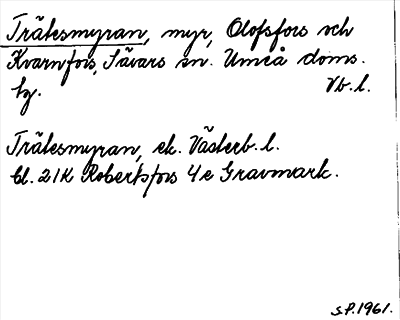 Trätesmyran, myr, Olofsfors och
Kvarnfors, Sävars sn. Umeå doms.
hg. Vb.l.
Trätesmyran, ek. Västerb.l.
bl. 21K Robertsfors 4e Gravmark.
S.P.1961.